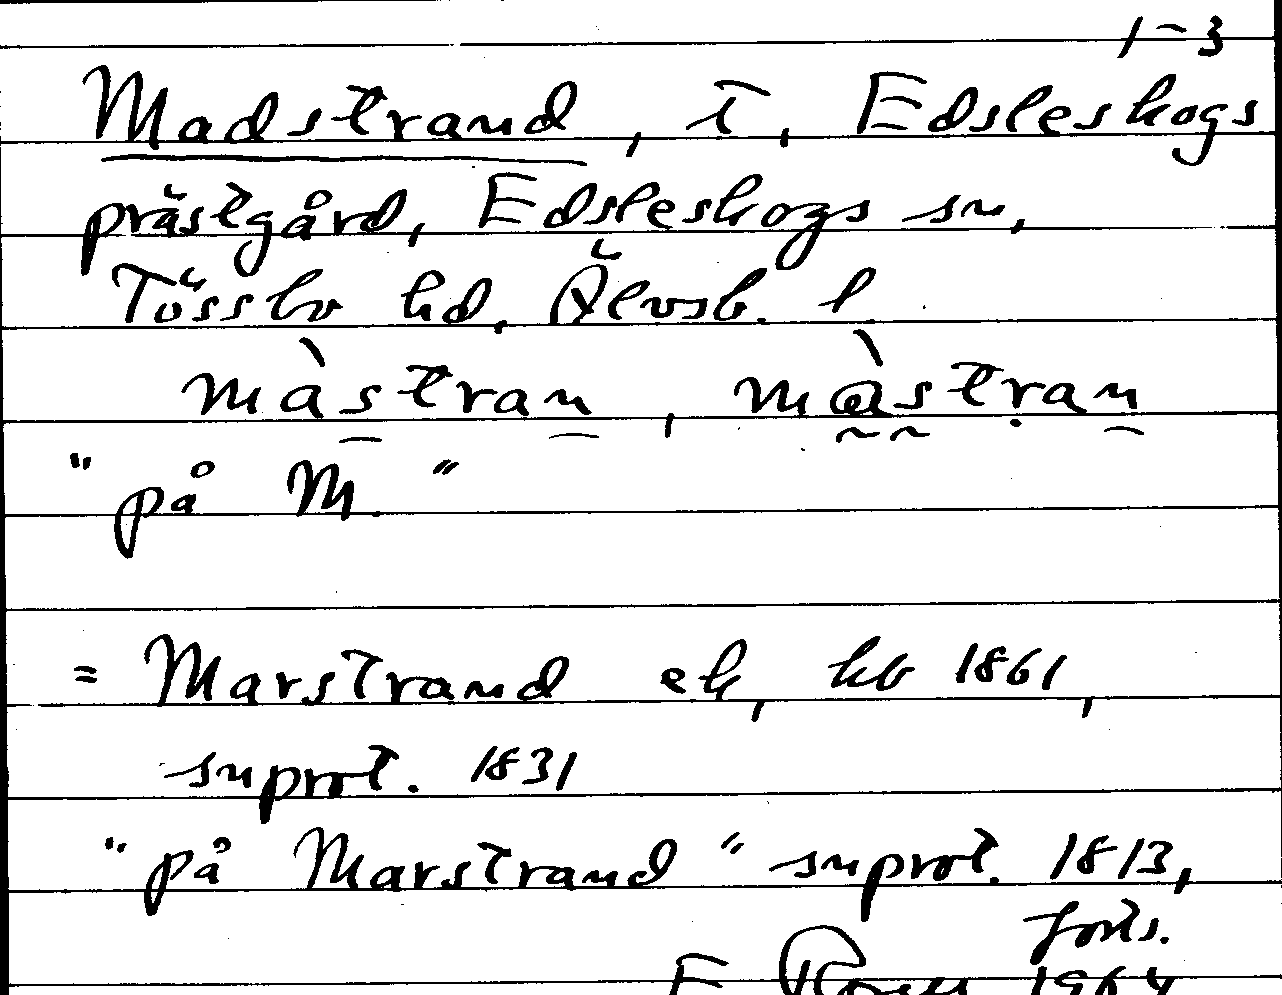 1-3
Madstrand, t, Edsleskogs
prästgård, Edsleskogs sn,
Tössbo hd, Älvsb. l
màstran, màstran
"på M."
= Marstrand ek, kb 1861,
snprot. 1831
"på Marstrand" snprot. 1813,
forts.
1964